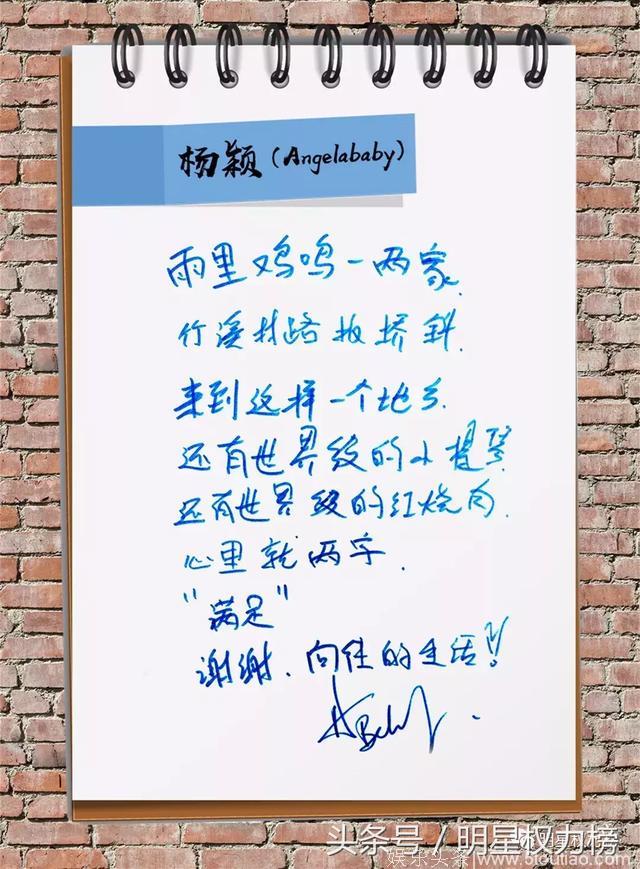 杨颖(Angelababy)
雨里鸡鸣一两家.
竹溪村路板桥斜.
来到这样一个地方.
还有世界级的小提琴
还有世界级的红烧肉.
心里就两字.
"满足"
谢谢.向往的生活!!
头条号/明星权力榜
娱乐头条
www.51toutiao.com